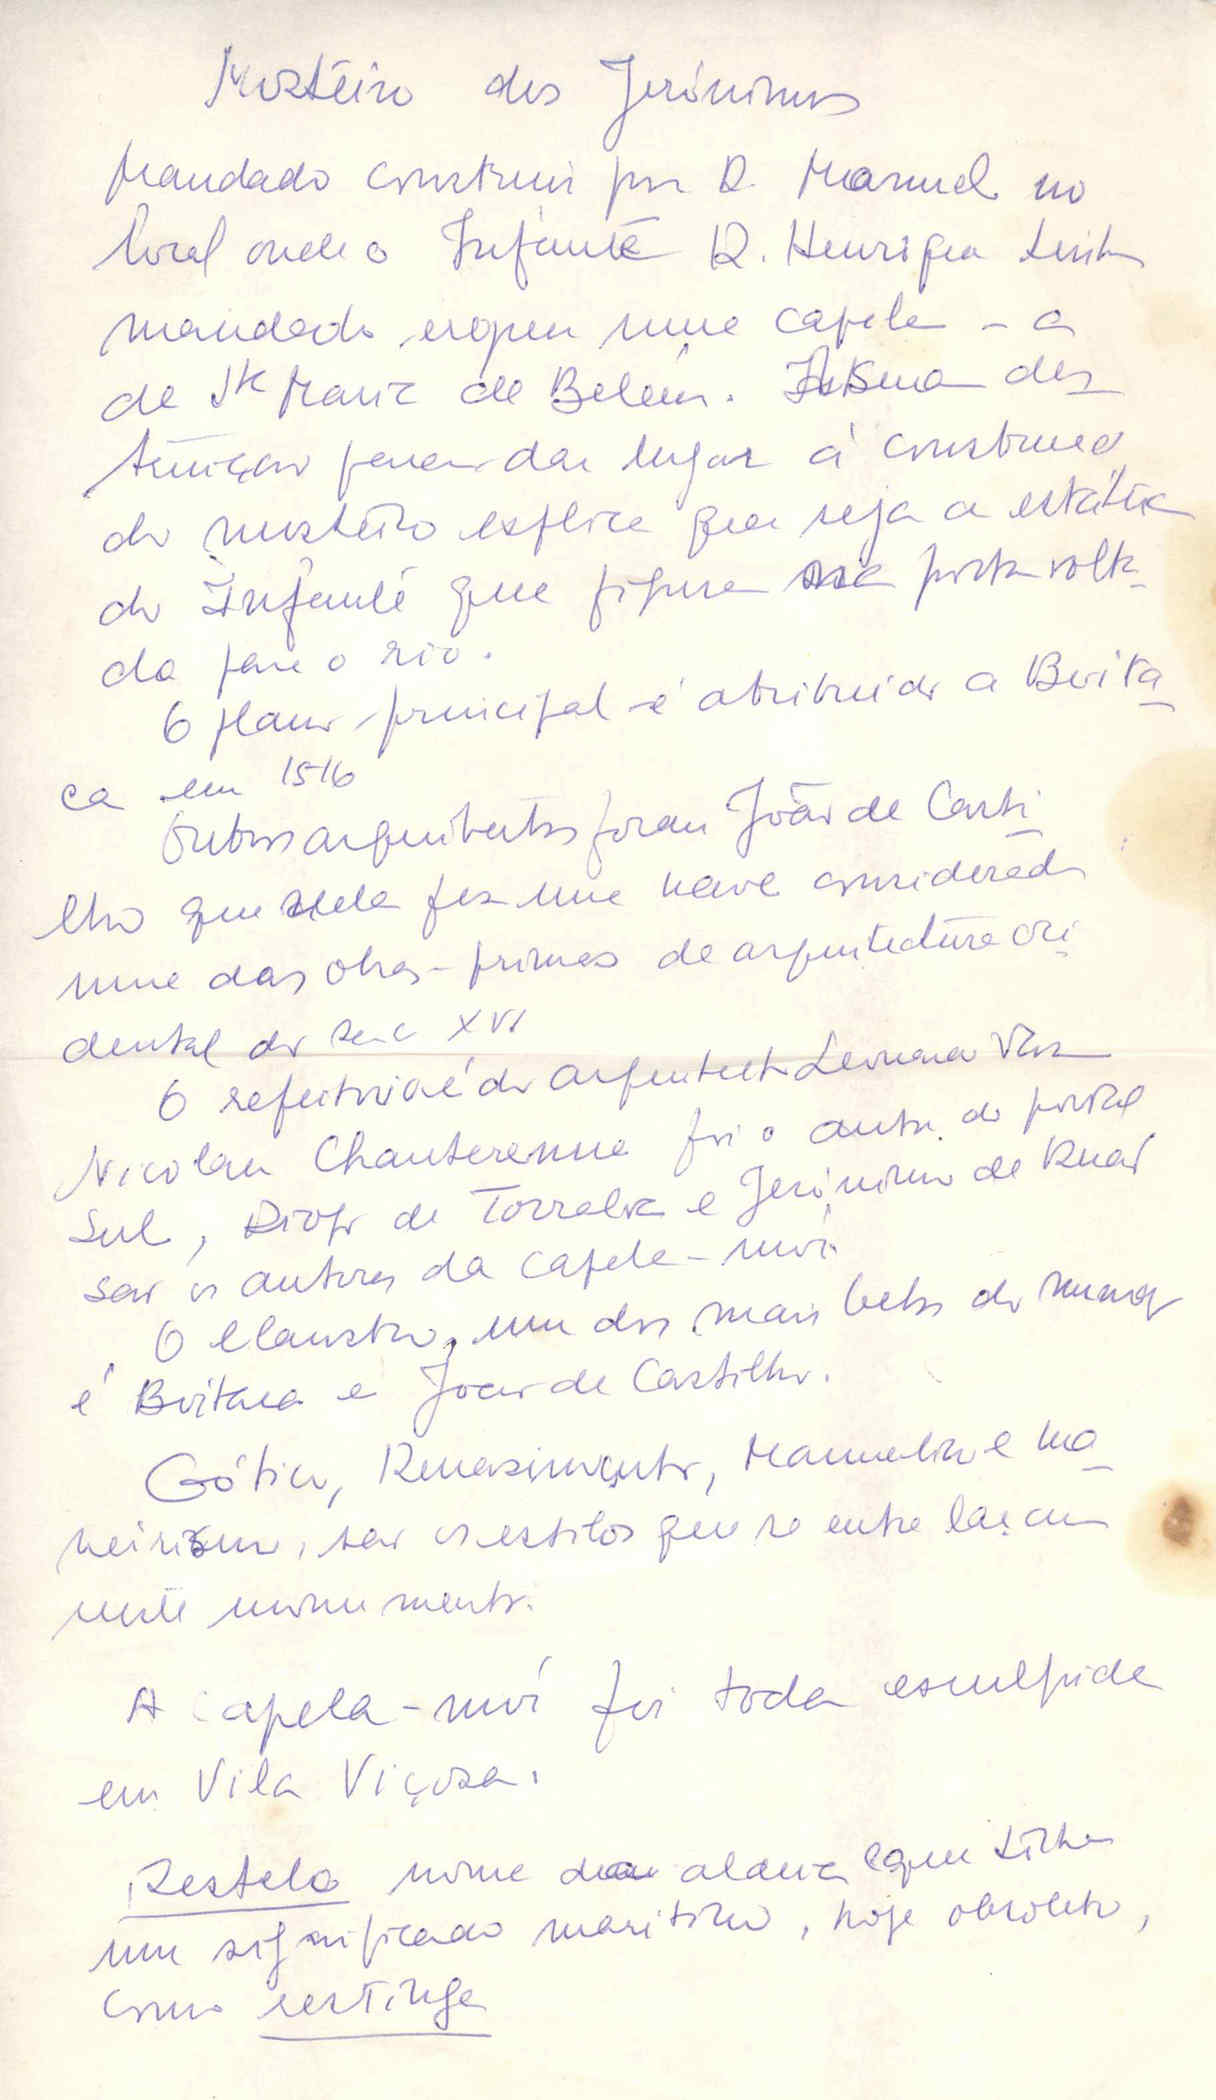 Mosteiro dos Jerónimos
Mandado construir por D. Manuel no
local onde o Infante D. Henrique tinha
mandado erguer uma capela - a
de Stª Maria de Belém. A sua des
truição para dar lugar à construção
do mosteiro explica que seja a estátua
do Infante que figura na porta volta-
da para o rio.
O plano principal é atribuido a Boita-
ca em 1516
Outros arquitectos foram João de Casti-
lho que nela fez uma nave considerada
uma das obras-primas de arquitectura oci-
dental do sec XVI
O refeitorio é do arquitecto Leonardo Vaz
Nicolau Chanterenne foi o autor do portal
Sul, Diogo de Torralva e Jerónimo de Ruão
são os autores da capela-mór.
O claustro, um dos mais belos do mundo
é Boitaca e João de Castilho.
Gótico, Renascimento, Manuelino e ma-
neirismo, são os estilos que se entrelaçam
neste monumento.
A capela-mór foi toda esculpida
em Vila Viçosa.
Restelo nome da aldeia aqui tinha
um significado maritimo, hoje obsoleto,
como restinga